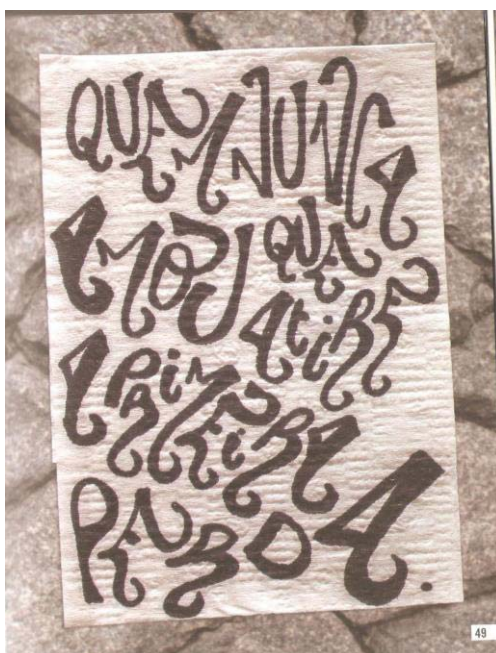 QUEM NUNCA
AMOU QUE
ATIRE
A PRIMEIRA
PERDA.
49